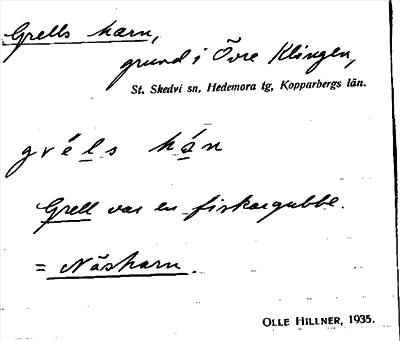 Grells harn,
grund i Övre Klingen,
St. Skedvi sn, Hedemora tg, Kopparbergs län.
gréls hán
Grell var en fiskargubbe.
= Näsharn.
OLLE HILLNER, 1935.